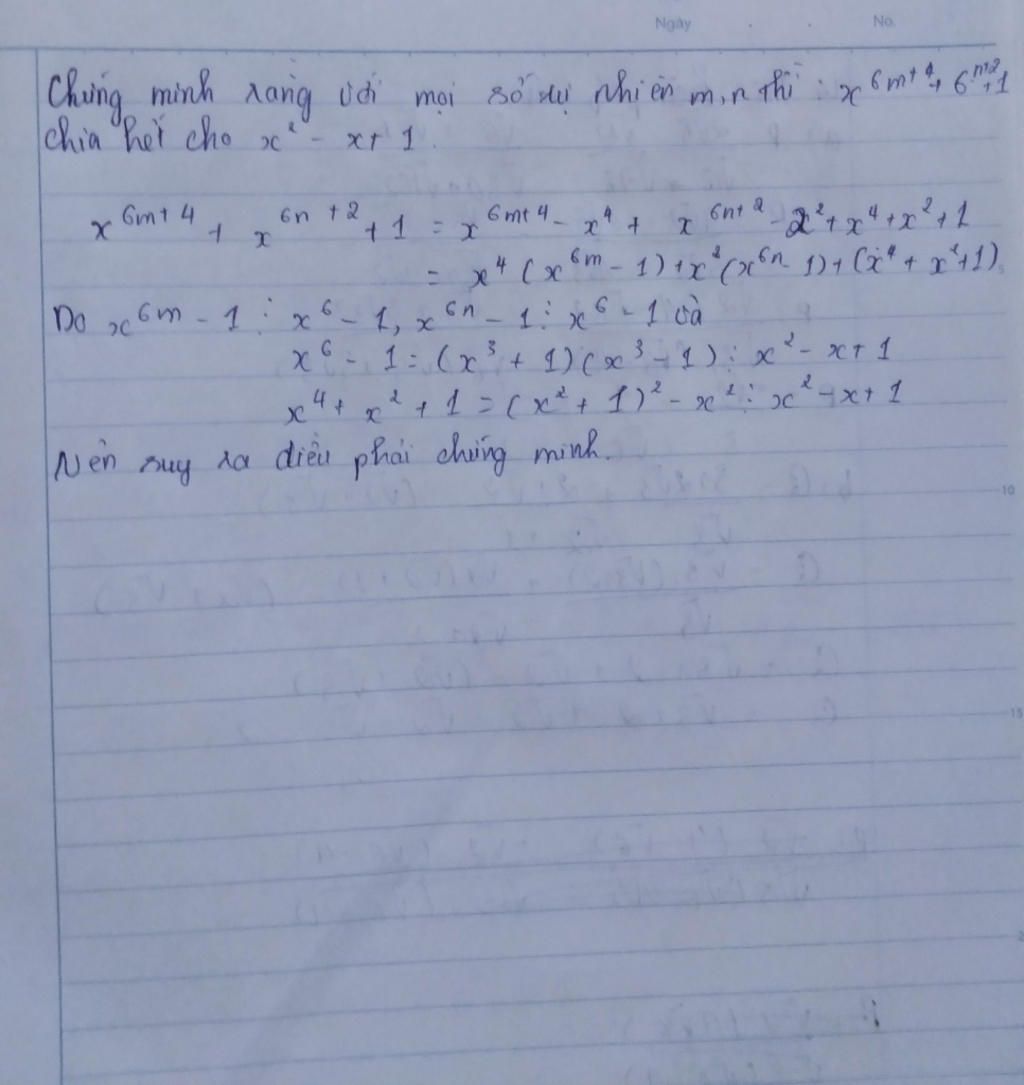 Ngày . . No.
Chứng minh rằng với mọi số tự nhiên m,n thì : x^{6m+4} + 6^{n+2} + 1
chia hết cho x² - x + 1.
x^{6m+4} + x^{6n+2} + 1 = x^{6m+4} - x⁴ + x^{6n+2} - 2² + x⁴ + x² + 1
= x⁴ (x^{6m} - 1) + x² (x^{6n} - 1) + (x⁴ + x² + 1)
Do x^{6m} - 1 ⋮ x⁶ - 1, x^{6n} - 1 ⋮ x⁶ - 1 và
x⁶ - 1 = (x³ + 1) (x³ - 1) ⋮ x² - x + 1
x⁴ + x² + 1 = (x² + 1)² - x² ⋮ x² - x + 1
Nên suy ra điều phải chứng minh.
10
15